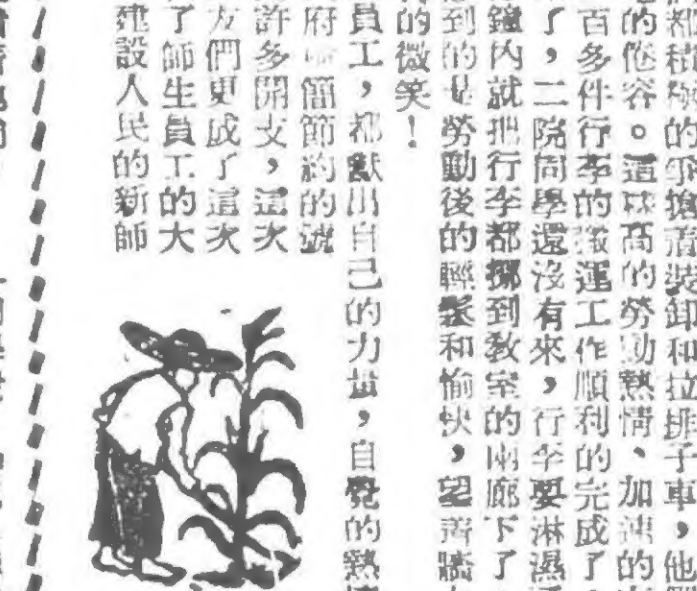 都積極的爭搶着裝卸和拉排子車，他
的倦容。這崇高的勞動熱情、加速的
百多件行李的搬運工作順利的完成了
了，二院同學還沒有來，行李要淋濕
鐘內就把行李都挪到教室的兩廊下了
到的是勞動後的輕鬆和愉快，望着牆
的微笑！
員工，都獻出自己的力量，自覺的熱
府 節約的號
許多開支，這次
友們更成了這次
了師生員工的大
建設人民的新師